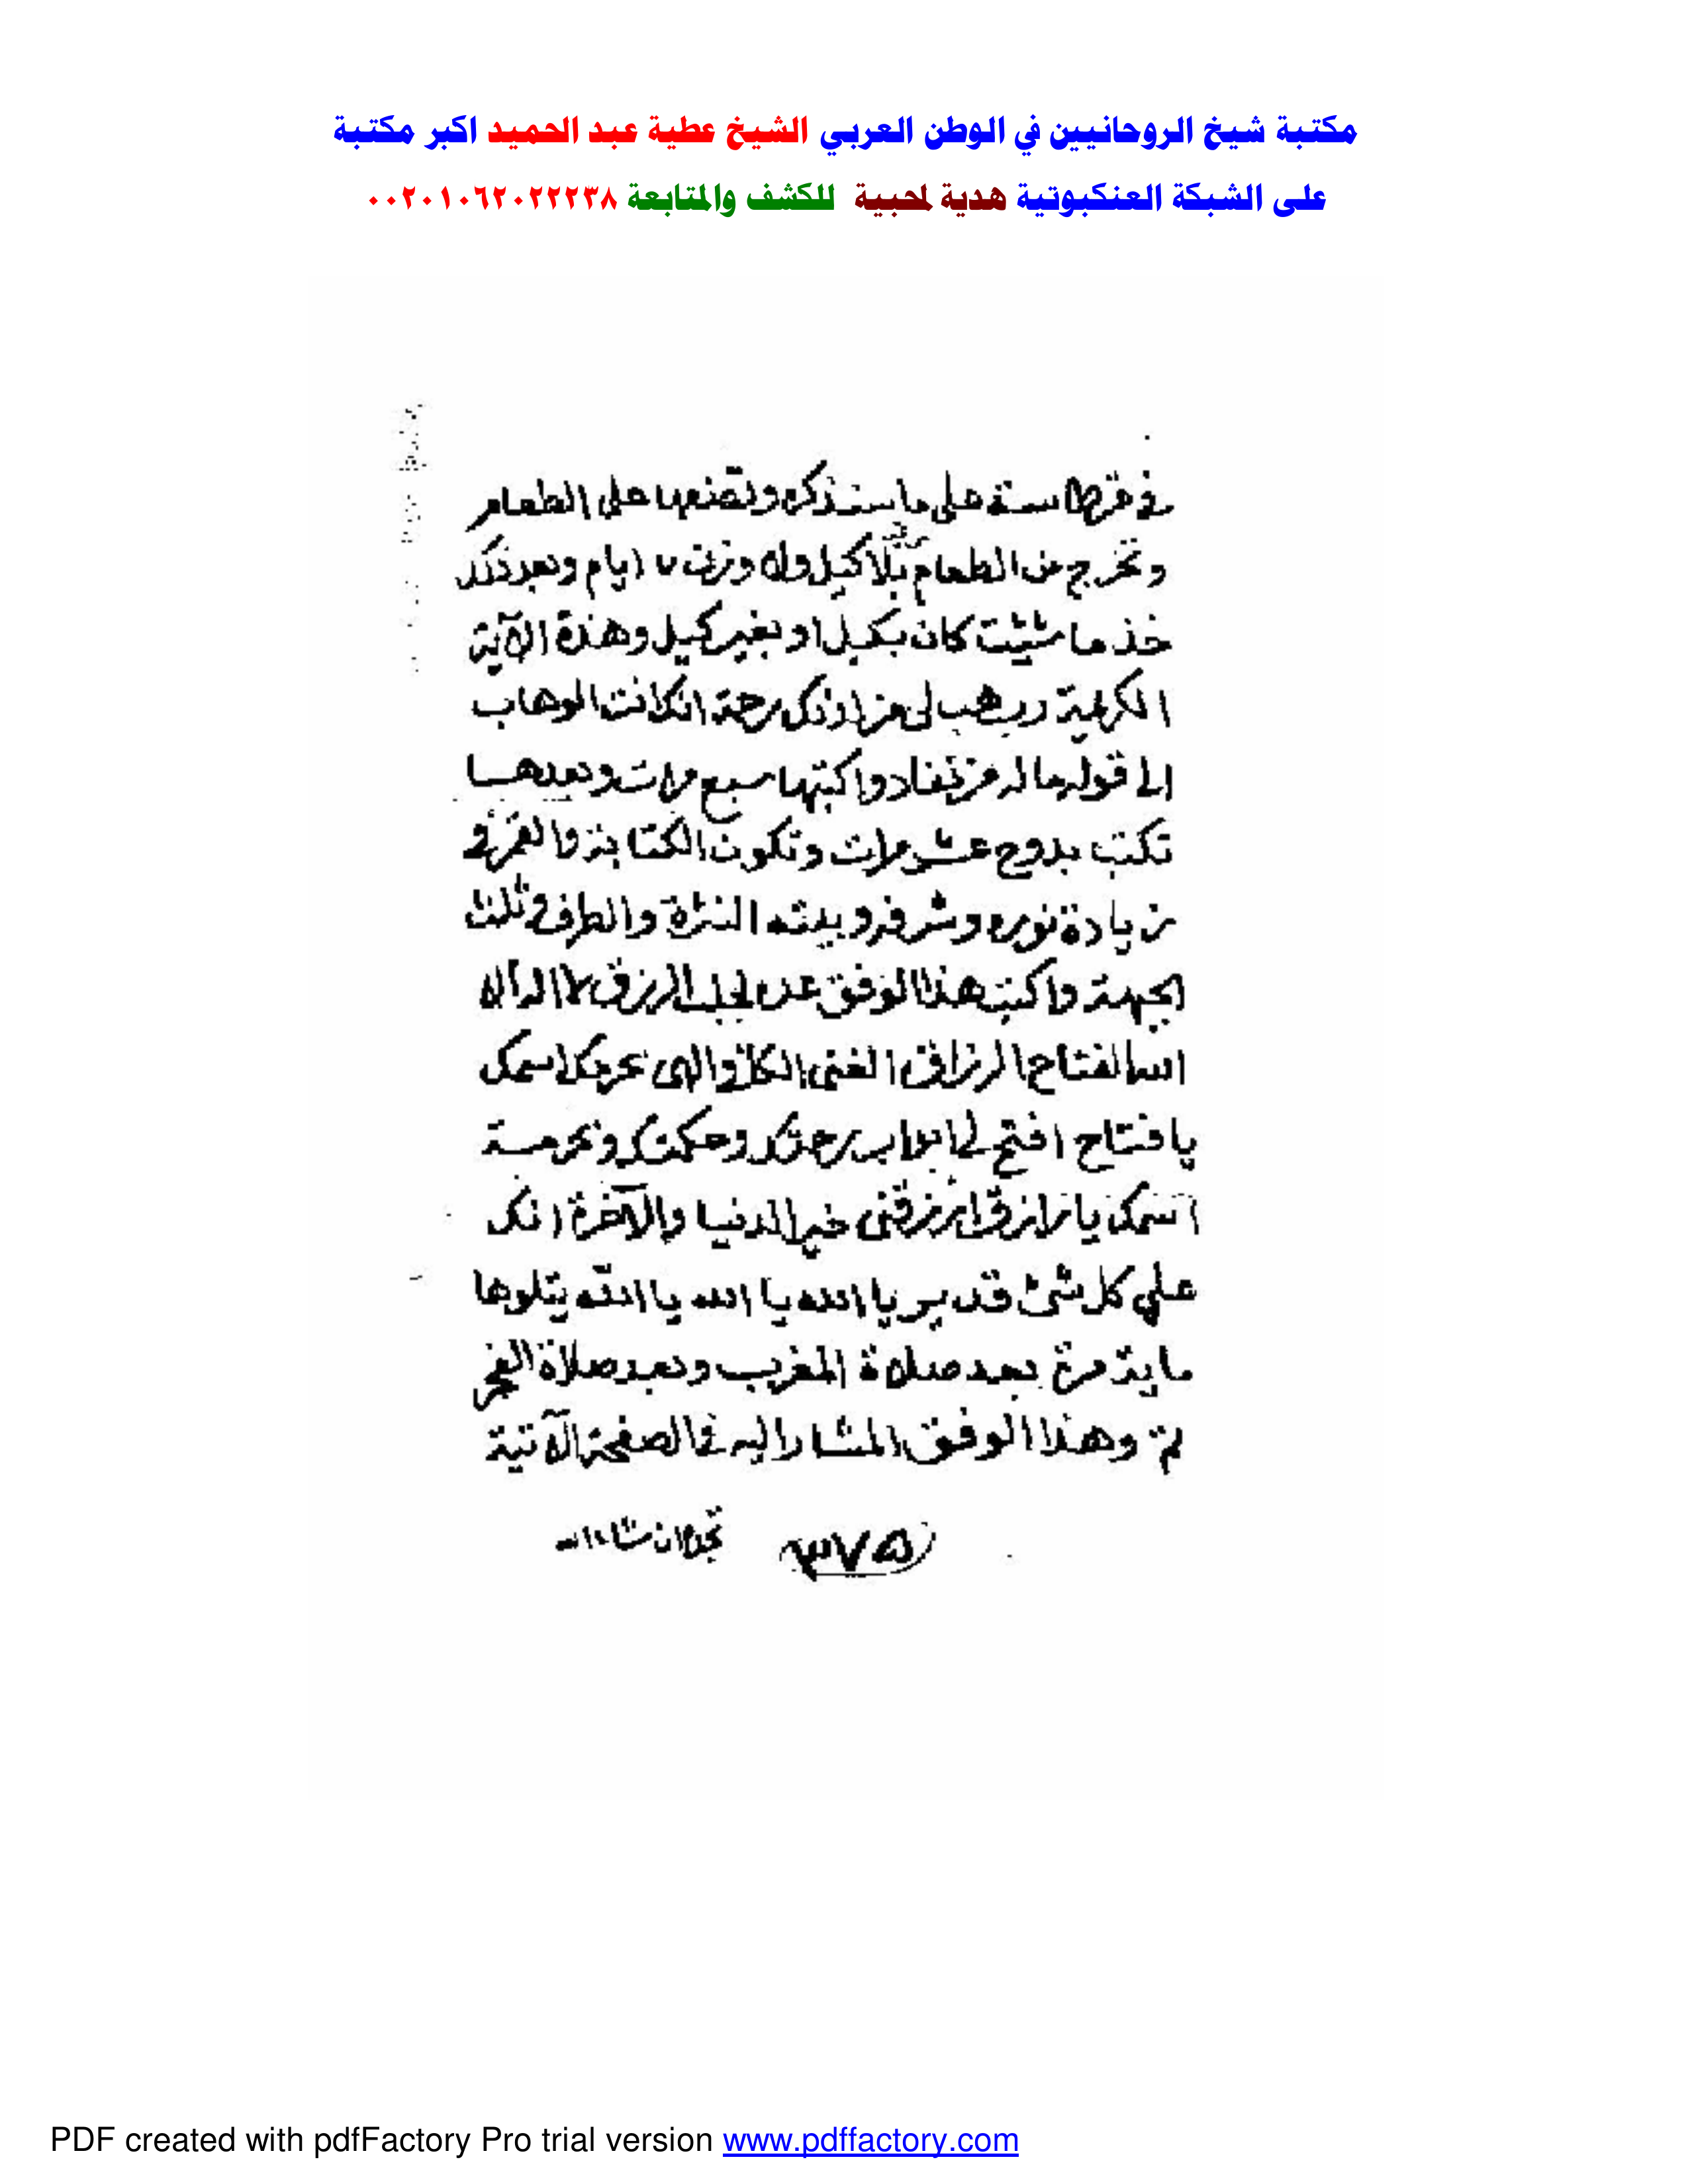 مكتبة شيخ الروحانيين في الوطن العربي الشيخ عطية عبد الحميد اكبر مكتبة
على الشبكة العنكبوتية هدية لمحبية للكشف والمتابعة ٠٠٢٠١٠٦٢٠٢٢٢٣٨
في قرطاسة على ما سنذكره وتضعها على الطعام
وتخرج من الطعام بلا كيل ولا وزن ٧ ايام وبعد ذلك
خذ ما شئيت كان بكيل او بغير كيل وهذة الآية
الكريمة رب هب لى من لدنك رحمة انك انت الوهاب
الى قوله ماله من نفاد واكتبها سبع مرات وبعدهـا
تكتب بدوح عشر مرات وتكون الكتابة والقمر في
زيادة نوره وشرفه وبيته النثرة والطرفة ثلث
الجبهة واكتب هذا الوفق لجلب الرزق لا اله الا
الله الفتاح الرزاق الغنى الكافى الهى بحرمة اسمك
يا فتاح افتح لى ابواب رحمتك وحكمتك وبحرمـة
اسمك يا رازق ارزقنى خير الدنيا والآخرة انك
على كل شئ قدير يا الله يا الله يا الله يتلوها
ماية مرة بعد صلاة المغرب وبعد صلاة الفجر
تم وهذا الوفق المشار اليه فى الصفحة الآتية
٣٧٥ تجده ان شاء الله
PDF created with pdfFactory Pro trial version www.pdffactory.com